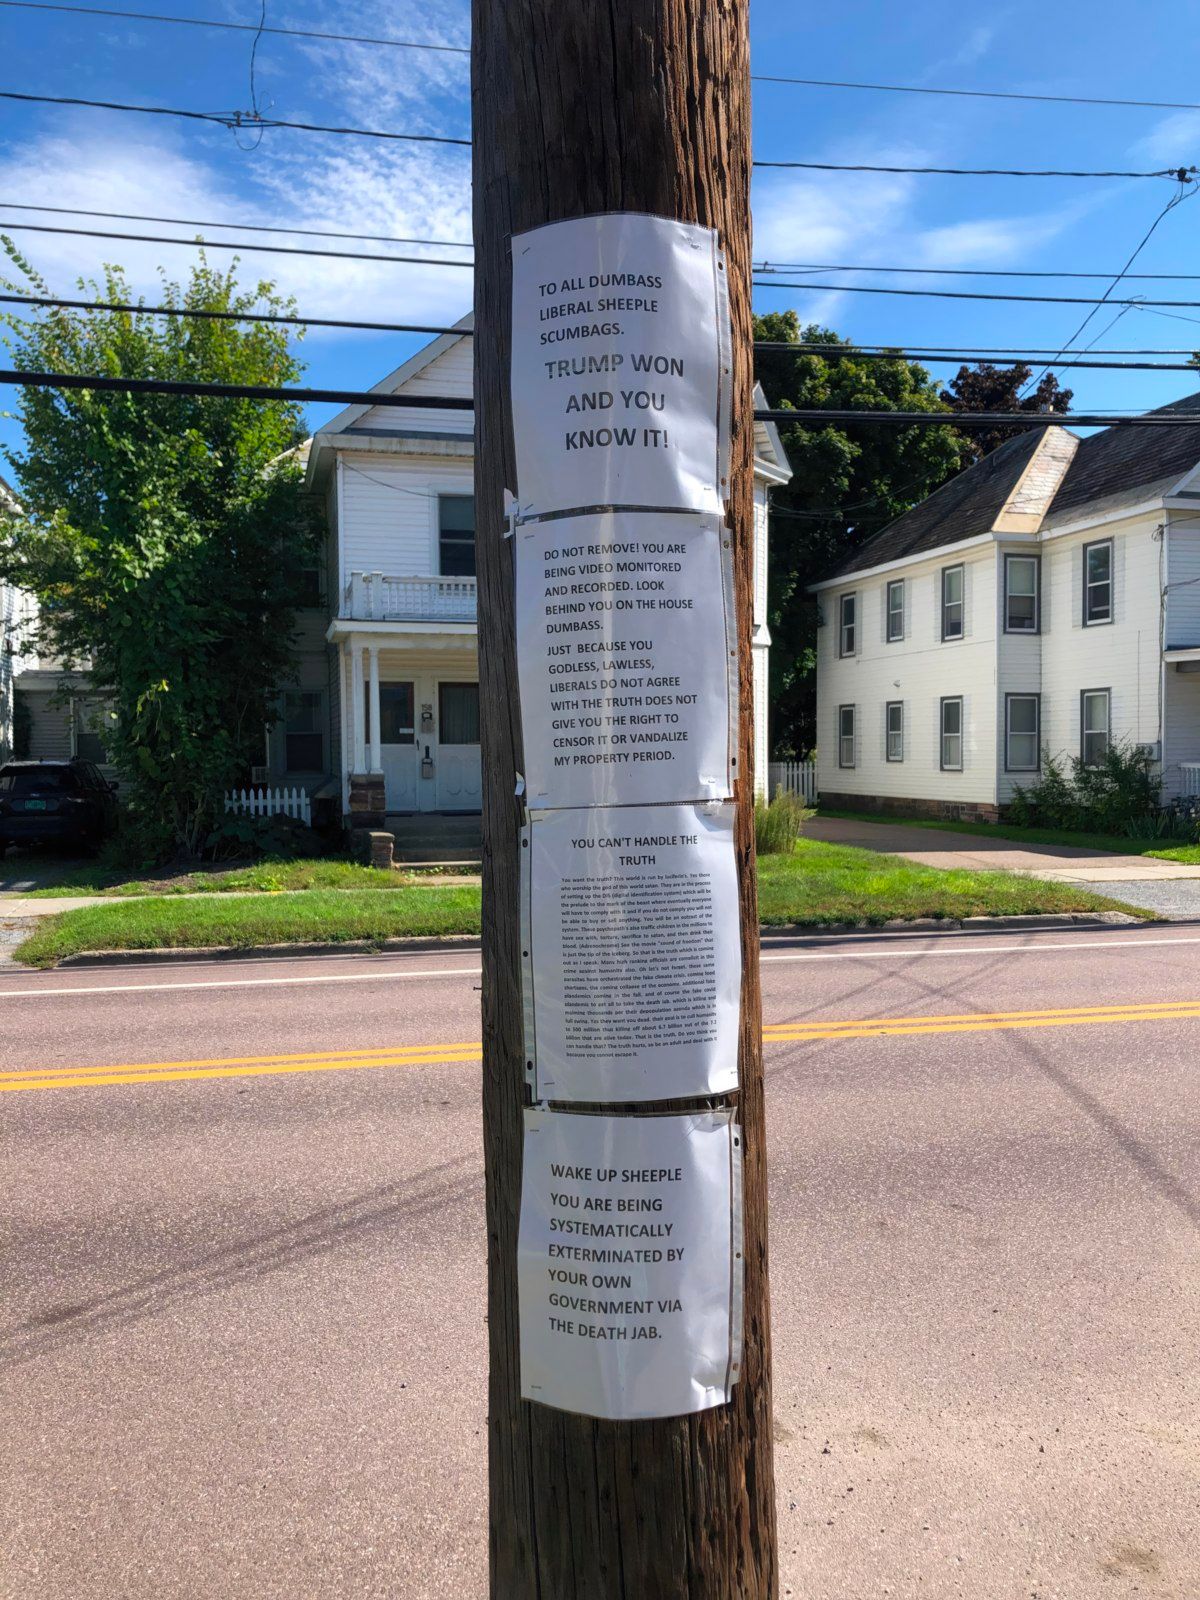 TO ALL DUMBASS
LIBERAL SHEEPLE
SCUMBAGS.
TRUMP WON
AND YOU
KNOW IT!
DO NOT REMOVE! YOU ARE
BEING VIDEO MONITORED
AND RECORDED. LOOK
BEHIND YOU ON THE HOUSE
DUMBASS.
JUST BECAUSE YOU
GODLESS, LAWLESS,
LIBERALS DO NOT AGREE
WITH THE TRUTH DOES NOT
GIVE YOU THE RIGHT TO
CENSOR IT OR VANDALIZE
MY PROPERTY PERIOD.
YOU CAN'T HANDLE THE
TRUTH
You want the truth? This world is run by luciferin's. Yes those
who worship the god of this world satan. They are in the process
of setting up the DIS (digital identification system) which will be
the prelude to the mark of the beast where eventually everyone
will have to comply with it and if you do not comply you will not
be able to buy or sell anything. You will be an outcast of the
system. These psychopath's also traffic children in the millions to
have sex with, torture, sacrifice to satan, and then drink their
blood. (Adrenochrome) See the movie "sound of freedom" that
is just the tip of the iceberg. So that is the truth which is coming
out as I speak. Many high ranking officials are complicit in this
crime against humanity also. Oh let's not forget, these same
parasites have orchestrated the fake climate crisis, coming food
shortages, the coming collapse of the economy, additional fake
plandemics coming in the fall, and of course the fake covid
plandemic to get all to take the death jab, which is killing and
maiming thousands per their depopulation agenda which is in
full swing. Yes they want you dead, their goal is to cull humanity
to 500 million thus killing off about 6.7 billion out of the 7.2
billion that are alive today. That is the truth. Do you think you
can handle that? The truth hurts, so be an adult and deal with it
because you cannot escape it.
WAKE UP SHEEPLE
YOU ARE BEING
SYSTEMATICALLY
EXTERMINATED BY
YOUR OWN
GOVERNMENT VIA
THE DEATH JAB.
158